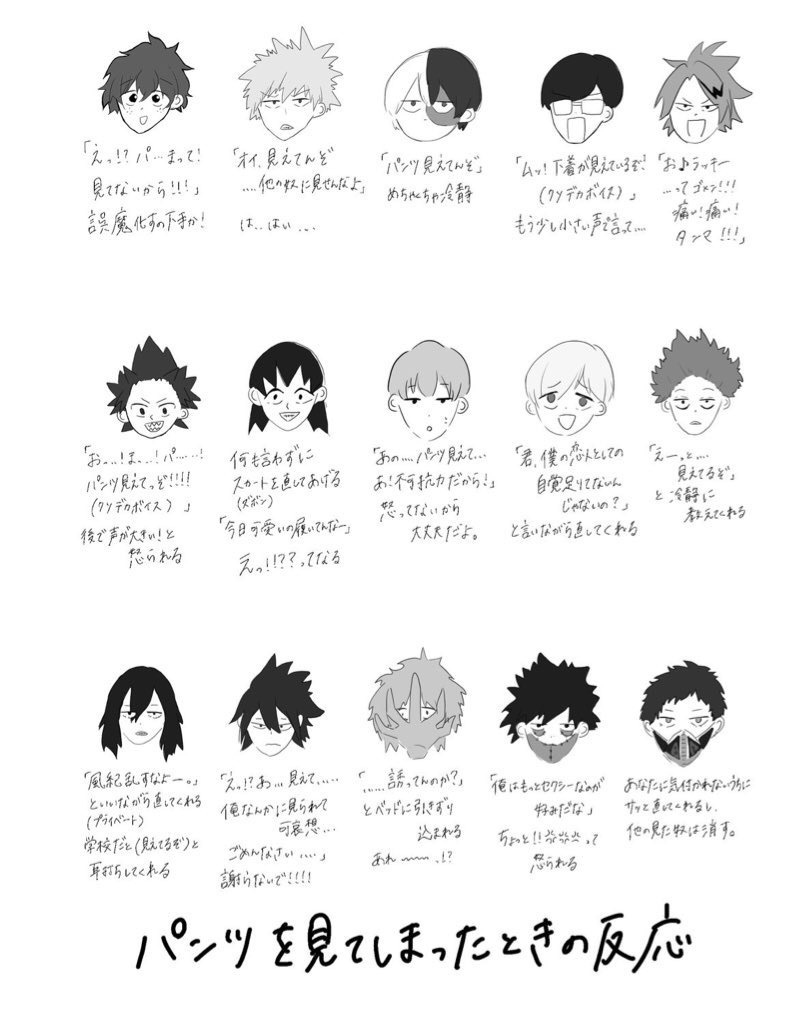 「えっ!? パ…まって!
見てないから!!!」
誤魔化すの下手か!
「オイ、見えてんぞ
....他の奴に見せんなよ」
は..はい...
「パンツ見えてんぞ」
めちゃくちゃ冷静
「ムッ!下着が見えているぞ!
(クソデカボイス)」
もう少し小さい声で言って....
「お♪ラッキー
...ってゴメン!!!
痛い!痛い!
タンマ!!!」
「おっ...!ま...!パ.....!
パンツ見えてっぞ!!!!
(クソデカボイス)」
後で声が大きい!と
怒られる
何も言わずに
スカートを直してあげる
(ズボン)
「今日可愛いの履いてんな〜」
えっ!!??ってなる
「あの....パンツ見えて...
あ!不可抗力だから!」
怒ってないから
大丈夫だよ。
「君、僕の恋人としての
自覚足りてないん
じゃないの?」
と言いながら直してくれる
「えーっと...
見えてるぞ」
と冷静に
教えてくれる
「風紀乱すなよー。」
といいながら直してくれる
(プライベート)
学校だと(見えてるぞ)と
耳打ちしてくれる
「えっ!?あ...見えて.....
俺なんかに見られて
可哀想...
ごめんなさい....」
謝らないで!!!!
「......誘ってんのか?」
とベッドに引きずり
込まれる
あれ〜〜、!?
「俺はもっとセクシーなのが
好みだな」
ちょっと!!って
怒られる
あなたに気付かれないうちに
サッと直してくれるし、
他の見た奴は消す。
パンツを見てしまったときの反応